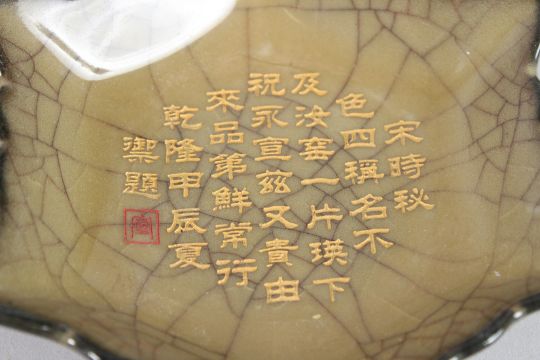 宋時秘
色四稱名不
及汝窑一片瑛下
祝永宣兹又貴由
來品第鮮常行
乾隆甲辰夏
御題